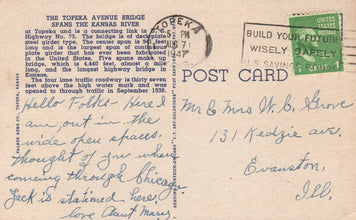 THE TOPEKA AVENUE BRIDGE
SPANS THE KANSAS RIVER
at Topeka and is a connecting link in U. S.
Highway No. 75. The bridge is of deck plate
steel girder construction. The center span is
feet long and is the longest span of continuous
plate girder that has ever been fabricated
in the United States. Five spans make up
bridge, which is 4,440 feet, almost a mile
long, and the longest highway bridge in
Kansas.
The four lane traffic roadway is thirty feet
above the high water mark and was
opened to through traffic in September 1938.
Hello Folks - Here I
am out in the
wide open spaces.
thought of you when
coming through Chicago
Jack is stationed here.
love Aunt Mary.
TOPEKA
5 PM
1947
BUILD YOUR FUTURE
WISELY SAFELY
U.S. SAVINGS
POST CARD
Mr & Mrs W. C. Grove
131 Kedzie ave.
Evanston,
Ill.